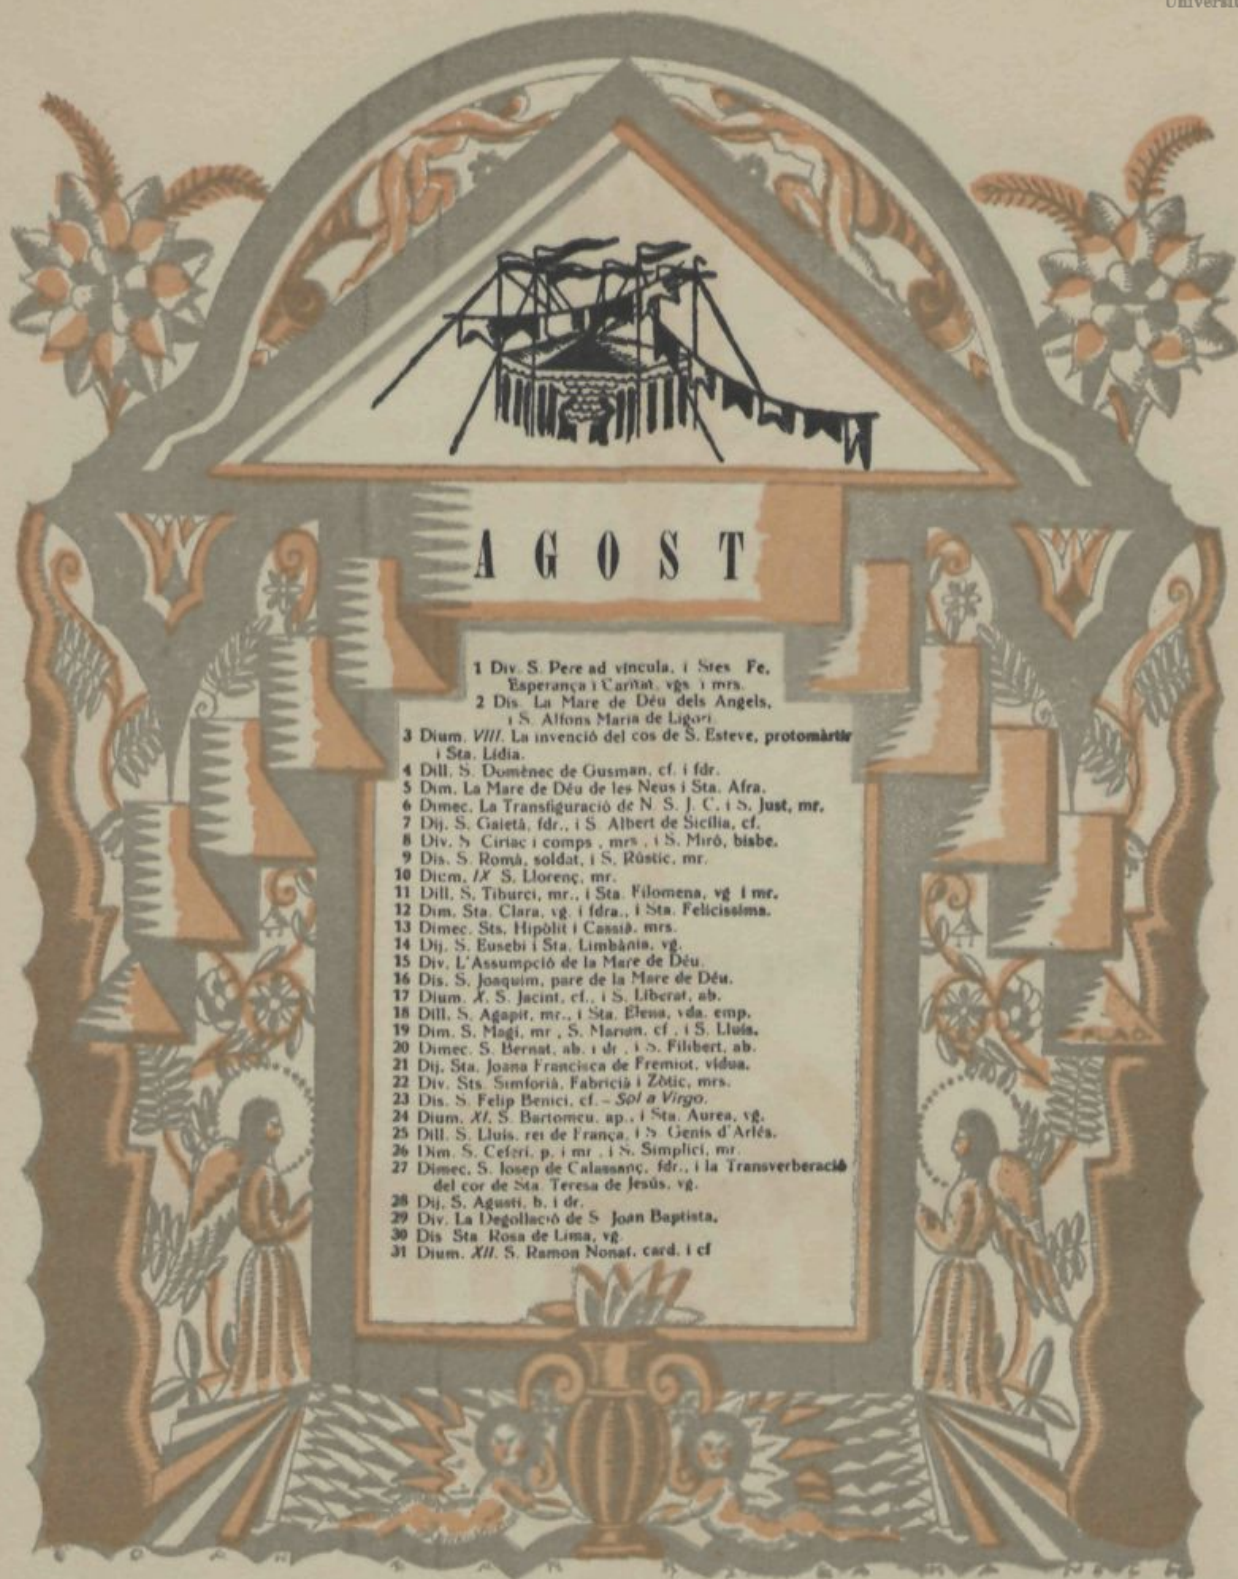 Universi
AGOST
1 Div. S. Pere ad vincula, i Stes Fe,
Esperança i Caritat, vgs i mrs.
2 Dis. La Mare de Déu dels Angels,
i S. Alfons Maria de Ligori.
3 Dium. VIII. La invenció del cos de S. Esteve, protomàrtir
i Sta. Lídia.
4 Dill. S. Domènec de Gusman, cf. i fdr.
5 Dim. La Mare de Déu de les Neus i Sta. Afra.
6 Dimec. La Transfiguració de N. S. J. C. i S. Just, mr.
7 Dij. S. Gaietà, fdr., i S. Albert de Sicília, cf.
8 Div. S. Ciriac i comps., mrs., i S. Miró, bisbe.
9 Dis. S. Romà, soldat, i S. Rústic, mr.
10 Dium. IX S. Llorenç, mr.
11 Dill. S. Tiburci, mr., i Sta. Filomena, vg i mr.
12 Dim. Sta. Clara, vg. i fdra., i Sta. Felicíssima.
13 Dimec. Sts. Hipòlit i Cassià, mrs.
14 Dij. S. Eusebi i Sta. Limbània, vg.
15 Div. L'Assumpció de la Mare de Déu.
16 Dis. S. Joaquim, pare de la Mare de Déu.
17 Dium. X. S. Jacint, cf., i S. Liberat, ab.
18 Dill. S. Agapit, mr., i Sta. Elena, vda. emp.
19 Dim. S. Magí, mr., S. Marian, cf., i S. Lluís.
20 Dimec. S. Bernat, ab. i dr., i S. Filibert, ab.
21 Dij. Sta. Joana Francisca de Fremiot, vídua.
22 Div. Sts. Simforià, Fabricià i Zòtic, mrs.
23 Dis. S. Felip Benici, cf. – Sol a Virgo.
24 Dium. XI. S. Bartomeu, ap., i Sta. Aurea, vg.
25 Dill. S. Lluís, rei de França, i S. Genís d'Arlés.
26 Dim. S. Ceferí, p. i mr., i S. Simplici, mr.
27 Dimec. S. Josep de Calassanç, fdr., i la Transverberació
del cor de Sta. Teresa de Jesús, vg.
28 Dij. S. Agustí, b. i dr.
29 Div. La Degollació de S. Joan Baptista.
30 Dis Sta Rosa de Lima, vg.
31 Dium. XII. S. Ramon Nonat, card. i cf